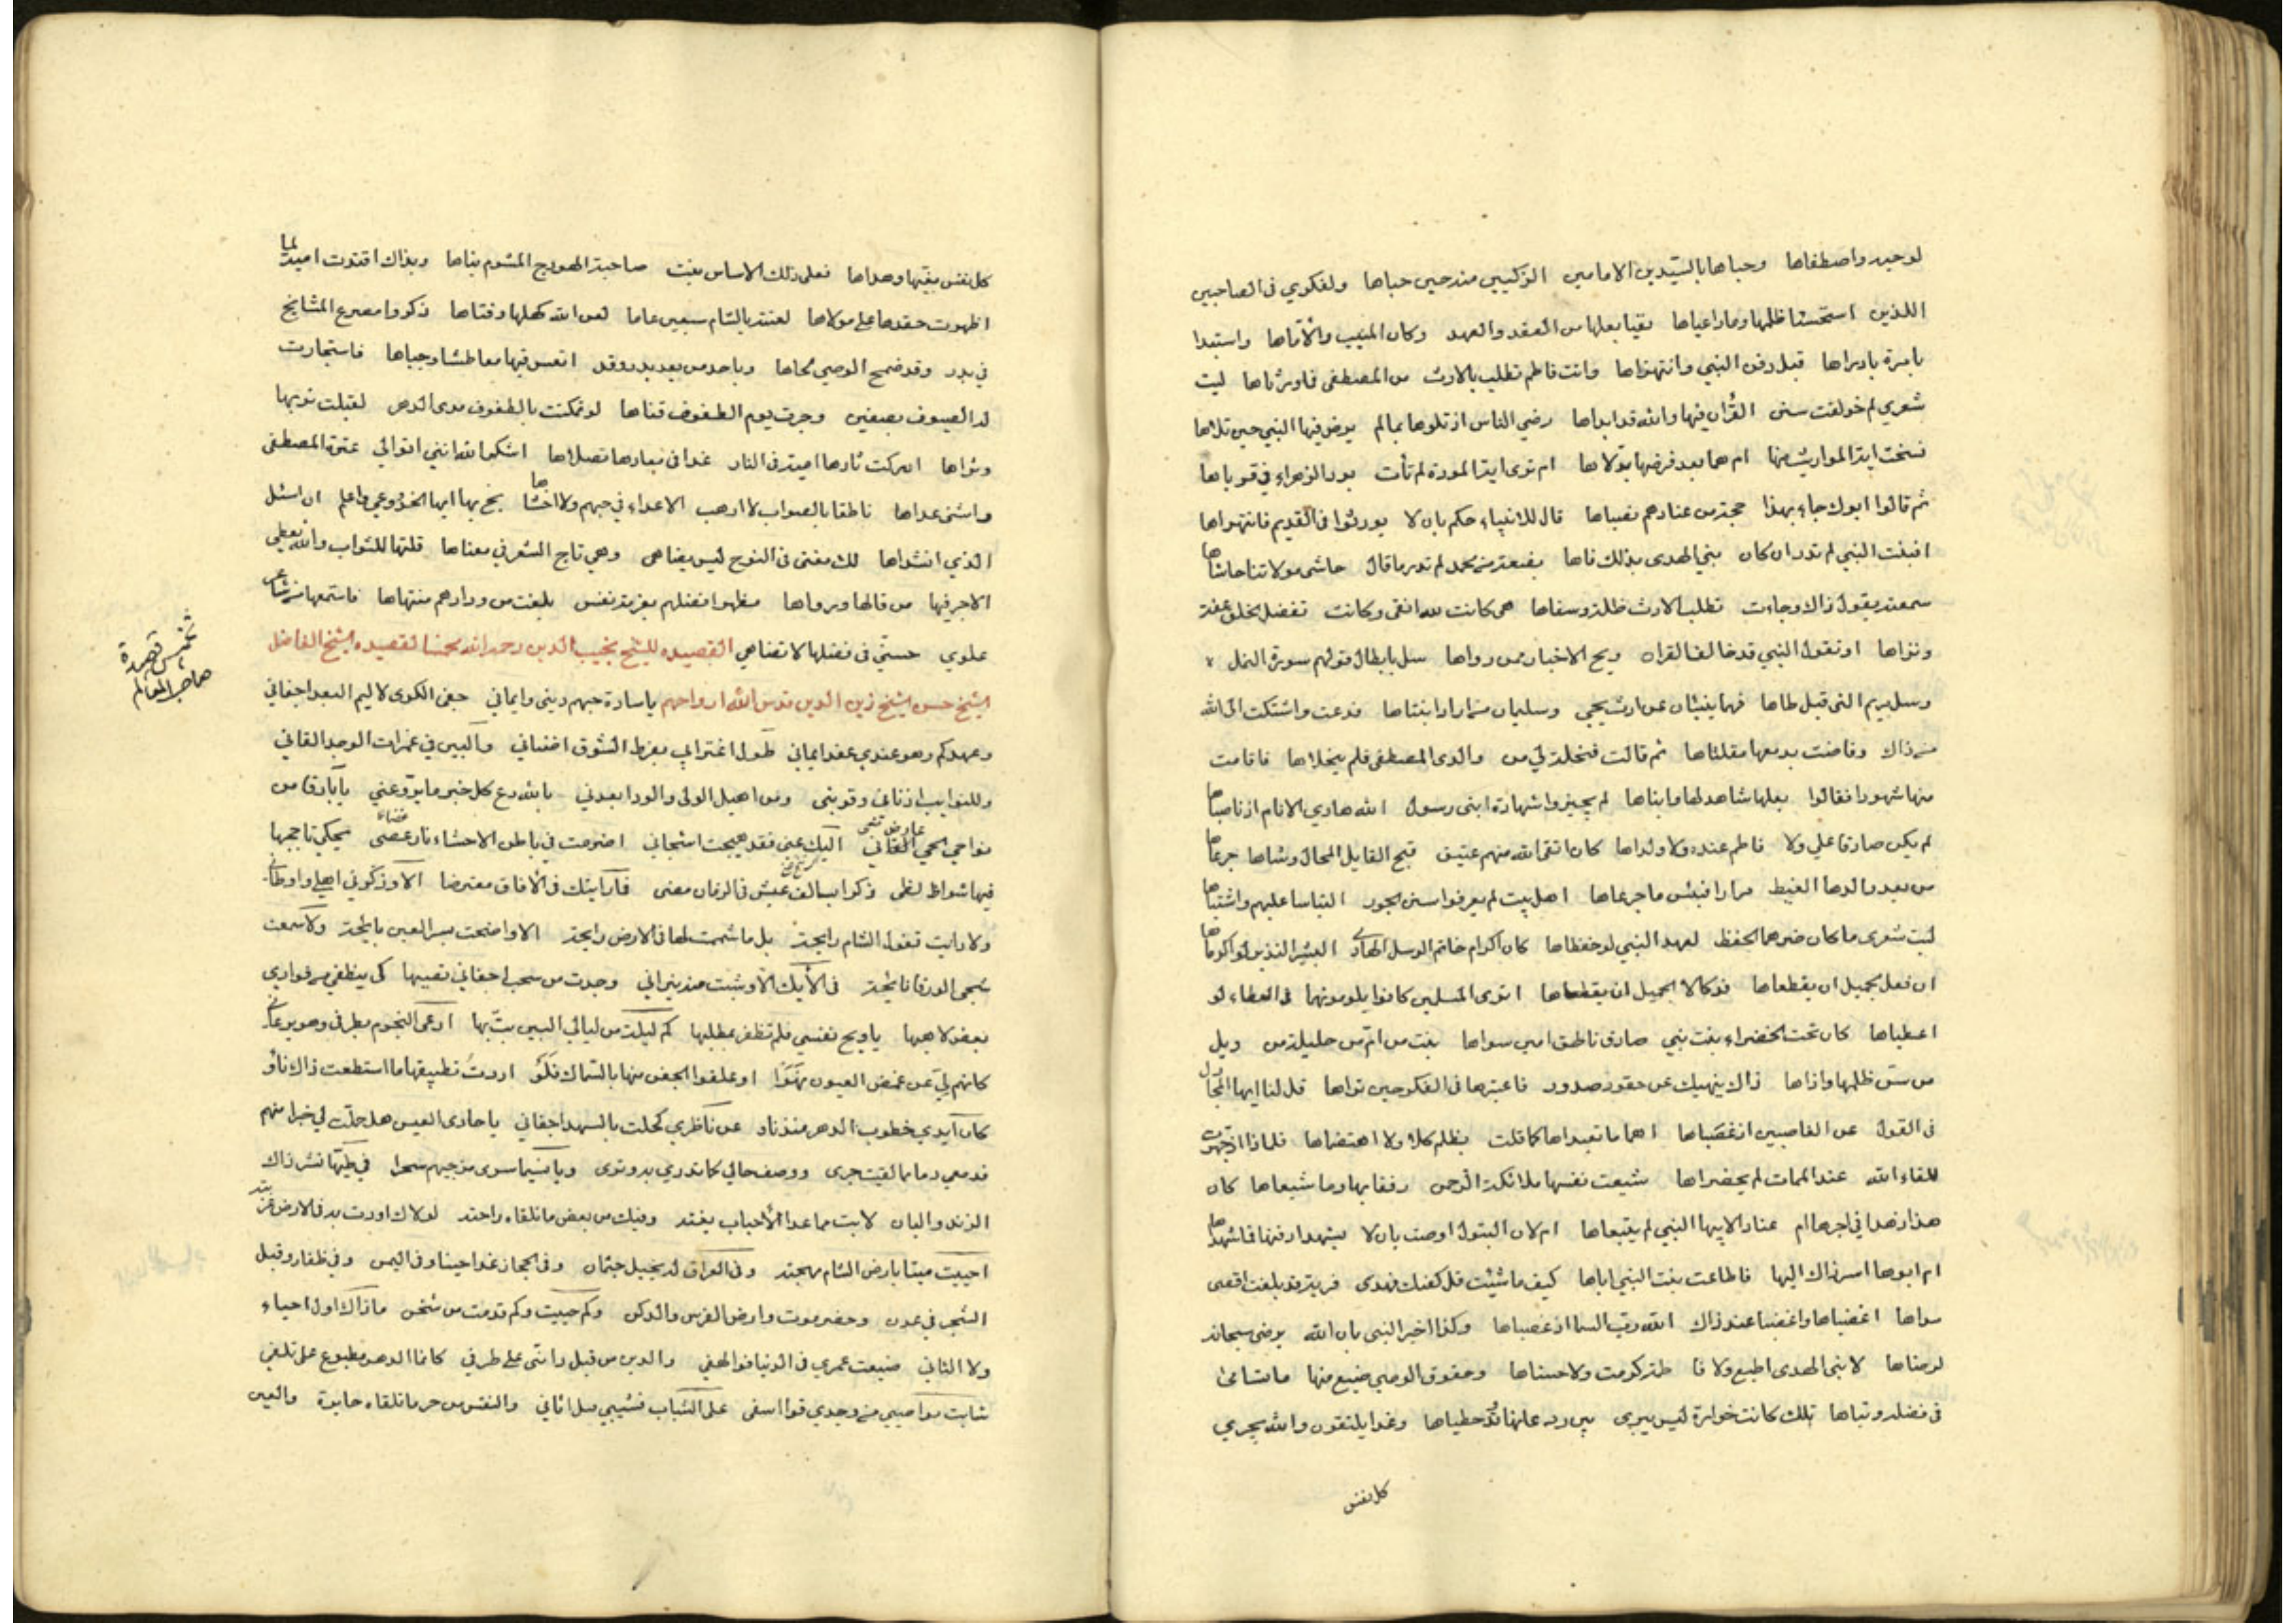 لوحيه واصطفاها وحباها بالسيدين الامامين الزكيين منه حين حباها ولفكري في الصاحبين
اللذين استحسنا ظلمها وما راعياها بقيا بعلها من العقد والعهد وكان المنيب والأواها واستبدا
بامرة بادراها قبل دفن النبي وانتهزاها واتت فاطم تطلب بالارث من المصطفى فما ورثاها ليت
شعري لم خولفت سنن القرآن فيها والله قد ابداها رضي الناس اذ تلوها بما لم يرض فيها النبي حين تلاها
نسخت اية المواريث منها ام هما بعد فرضها بدلاها ام ترى اية المودة لم تأت بود الزهراء في قرباها
ثم قالوا ابوك جاء بهذا حجة من عنادهم نصباها قال للانبياء حكم بان لا يورثوا في القديم فانتهراها
افبنت النبي لم تدر ان كان نبي الهدى بذلك فاها بضعة من محمد لم تدر ما قال حاشى مولاتنا حاشاها
سمعته يقول ذاك وجاءت تطلب الارث ظلة وسفاها هي كانت لله اتقى وكانت تفضل الخلق عفة
ونزاها او تقول النبي قد خالف القران ويح الاخبار ممن رواها سل بابطال قولهم سورة النمل
وسل مريم التي قبل طاها فهما ينبئان عن ارث يحيى وسليمان من اراد انبتاها فدعت واشتكت الى الله
من ذاك وفاضت بدمعها مقلتاها ثم قالت فنحلة لي من والدي المصطفى فلم ينحلاها فاقامت
منها شهودا فقالوا بعلها شاهد لها وابناها لم يجيزوا شهادة ابني رسول الله هادي الانام اذ ناصباها
لم يكن صادقا علي ولا فاطم عنده ولا ولداها كان اتقى الله منهم عتيق قبح القايل المحال وشاها جرعاها
من بعد والدها الغيظ مرارا فبئس ما جرعاها اهل بيت لم يعرفوا سنن الجور التباسا عليهم واشتباها
ليت شعري ما كان ضرهما الحفظ لعهد النبي لو حفظاها كان اكرام خاتم الرسل الهادي البشير النذير لو اكرماها
ان فعل الجميل ان يقطعاها ولكان الجميل ان يقطعاها اترى المسلمين كانوا يلومونهما في العطاء لو
اعطياها كان تحت الخضراء بنت نبي صادق ناطق امين سواها بنت من ام من حليلة من ويل
من سن ظلمها واذاها ذاك ينهيك عن حقود صدور فاعتبرها في الفكر حين تراها قل لنا ايها المجادل
في القول عن الغاصبين اذ غصباها اهما ما تعمداها كما قلت بظلم كلا ولا اهتضماها فلماذا اذ جهزت
للقاء الله عند الممات لم يحضراها شيعت نفسها ملائكة الرحمن رفقا بها وما شيعاها كان
هذا زهدا في اجرها ام عنادا لابيها النبي لم يتبعاها ام لان البتول اوصت بان لا يشهدا دفنها فما شهداها
ام ابوها اسر ذاك اليها فاطاعت بنت النبي اباها كيف ما شئت قل كفتك فهذى فرية قد بلغت اقصى
مداها اغضباها واغضبا عند ذاك الله رب السما اذ غضباها وكذا اخبر النبي بان الله يرضى سبحانه
لرضاها لا نبي الهدى اطيع ولا فا طمة كرمت ولا حسناها وحقوق الوصي ضيع منها ما تسامى
في فضله وتناها تلك كانت خوازة ليس يبرى حين ردا عنها وقد خطباها وغدا يلتقون والله يجزي
كل نفس
كل نفس بغيها وهداها فعلى ذلك الاساس بنت صاحبة الهودج المشوم بناها وبذاك اقتدت امية لما
اظهرت حقدها على مولاها لعنته بالشام سبعين عاما لعن الله كهلها وفتاها ذكروا مصرع المشايخ
في بدر وقد ضمخ الوصي لحاها وباحد من بعد بدر وقد اتعس فيها معاطسا وجباها فاستجارت
له السيوف بصفين وجرت يوم الطفوف قناها لو تمكنت بالطفوف مدى الدهر لقبلت تربها
وثراها ادركت ثارها امية في النار غدا في معادها تصلاها اشكر الله انني اتوالى عترة المصطفى
واشنى عداها ناطقا بالصواب لا ارهب الاعداء في حبهم ولا اخشاها بخ بها ايها الجذوعي واعلم ان استل
الذي انشداها لك معنى في النوح ليس يضاهى وهي تاج الشعر في معناها قلتها للثواب والله يعطي
الاجر فيها من قالها ورواها مظهرا فضلهم بعزمة نفس بلغت من ودادهم منتهاها فاستمعها من شاعر
علوي حسني في فضلها لا تضاهى القصيده للشيخ نجيب الدين رحمه الله مخمسا لقصيده الشيخ الفاضل
الشيخ حسن الشيخ زين الدين قدس الله ارواحهم ياسادة حبهم ديني وايماني جفى الكرى لاليم البعد اجفاني
وعهدكم وهو عندي عقد ايماني طول اغترابي بفرط الشوق اضناني والبين في غمرات الوجد القاني
وللنوايب ادناني وقربني ومن اهيل الولى والود ابعدني بالله دع كل خبر ما يروعني يا بارقا من
نواحي الحي عارضني اليك عني فقد هيجت اشجاني اضرمت في باطن الاحشاء نار غضا يحكي تاججها
فيها شواظ لظى ذكرا بسالف عيش في الزمان مضى فما رايتك في الآفاق معترضا الا وذكرتني اهلي واوطاني
ولا رايت تفول الشام رايحة بل ما شممت لها في الارض رايحة الا واضحت بسر العين بايحة ولا سمعت
شجى الورقا نايحة في الأيك الا وشبت منه نيراني وجدت من سحب اجفاني بصيبها كي ينطفي من فوادي
بعض لاهبها ياويح نفسي فلم تظفر بمطلبها كم ليلة من ليالي البين بت بها ارعى النجوم بطرفي وهو يرعاني
كانهم لي عن غمض العيون نهوا او علقوا الجفن منها بالسماك فلو اردت تطبيقها ما استطعت ذاك ناو
كان ايدي خطوب الدهر منذ ناو عن ناظري كحلت بالسهد اجفاني يا حادي العيس هل حلت لي خبرا منهم
فدمعي دما مما لقيت جرى ووصف حالي كما تدري به وترى ويا نسيما سرى من حيهم سحرا في طيه نشر ذاك
الرند والبان لا بت مما عدا الأحباب يفتد وفيك من بعض ما تلقاه راحته لولاك اودت به في الارض غربته
احييت ميتا بارض الشام مهجته وفي العراق له تخييل جثمان وفي الحجاز غدا حينا وفي اليمن وفي ظفار وقبل
الشحر في عدن وحضرموت وارض الفرس والدكن وكم حييت وكم قدمت من شجن ما ذاك اول احياء
ولا الثاني ضيعت عمري في الدنيا فوا لهفي والدين من قبل داستي على طرفي كانما الدهر مطبوع على تلفي
شابت نواصيي من وجدي فوا اسفي على الشباب فشيبي قبل اناني والنفس من حر ما تلقاه حايرة والعين
تخميس قصيدة
صاحب المعالم